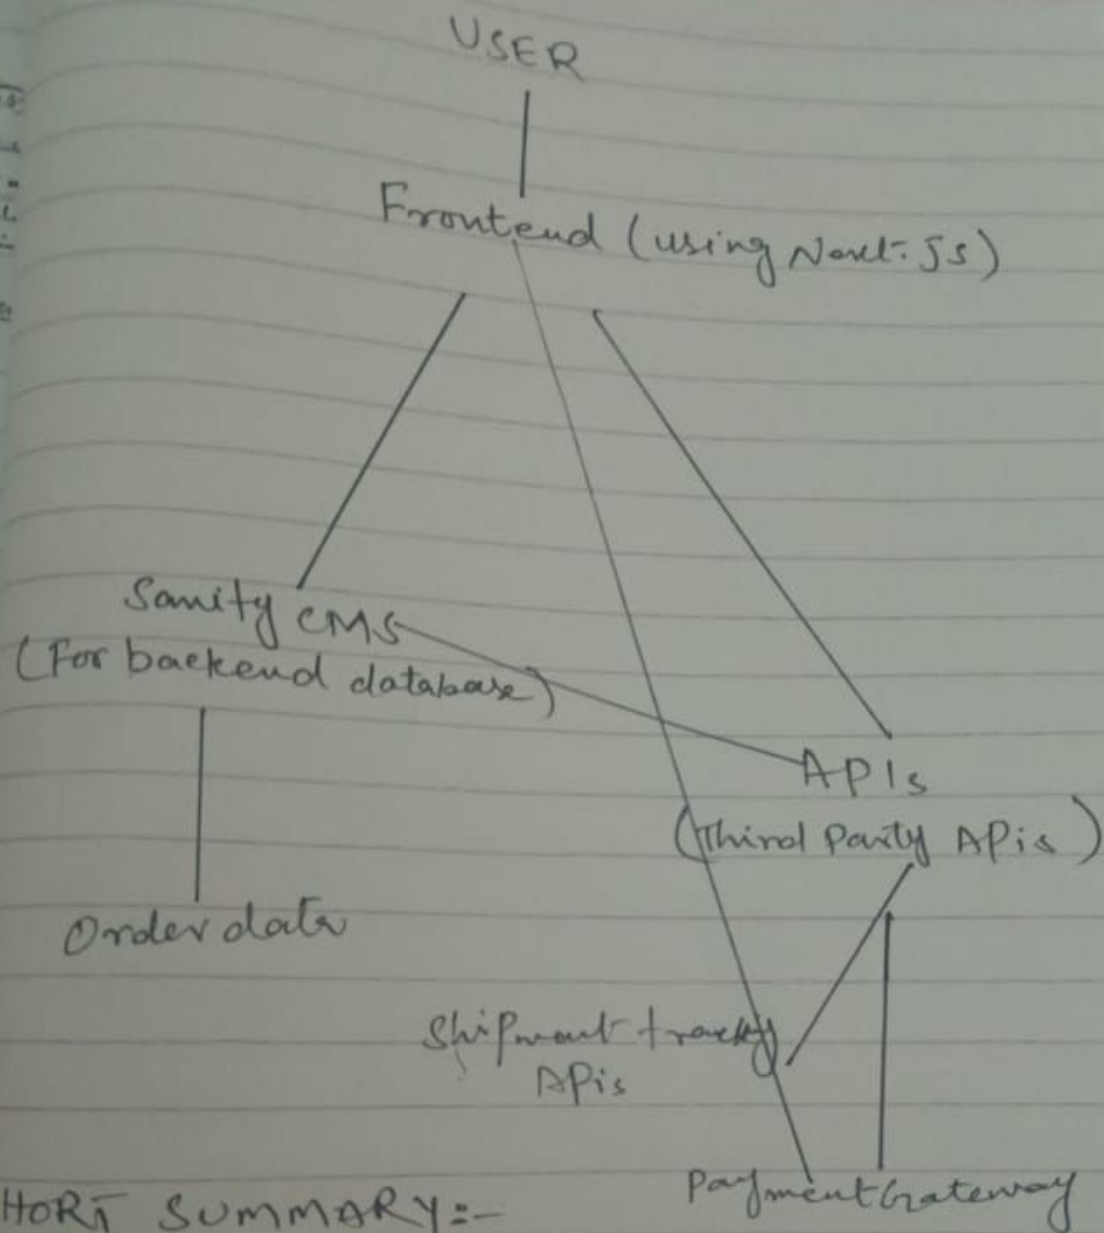 USER
Frontend (using Next.js)
Sanity CMS
(For backend database)
APIs
(Third Party APis)
Order data
Shipment tracking
APis
Payment Gateway
HORT SUMMARY:-